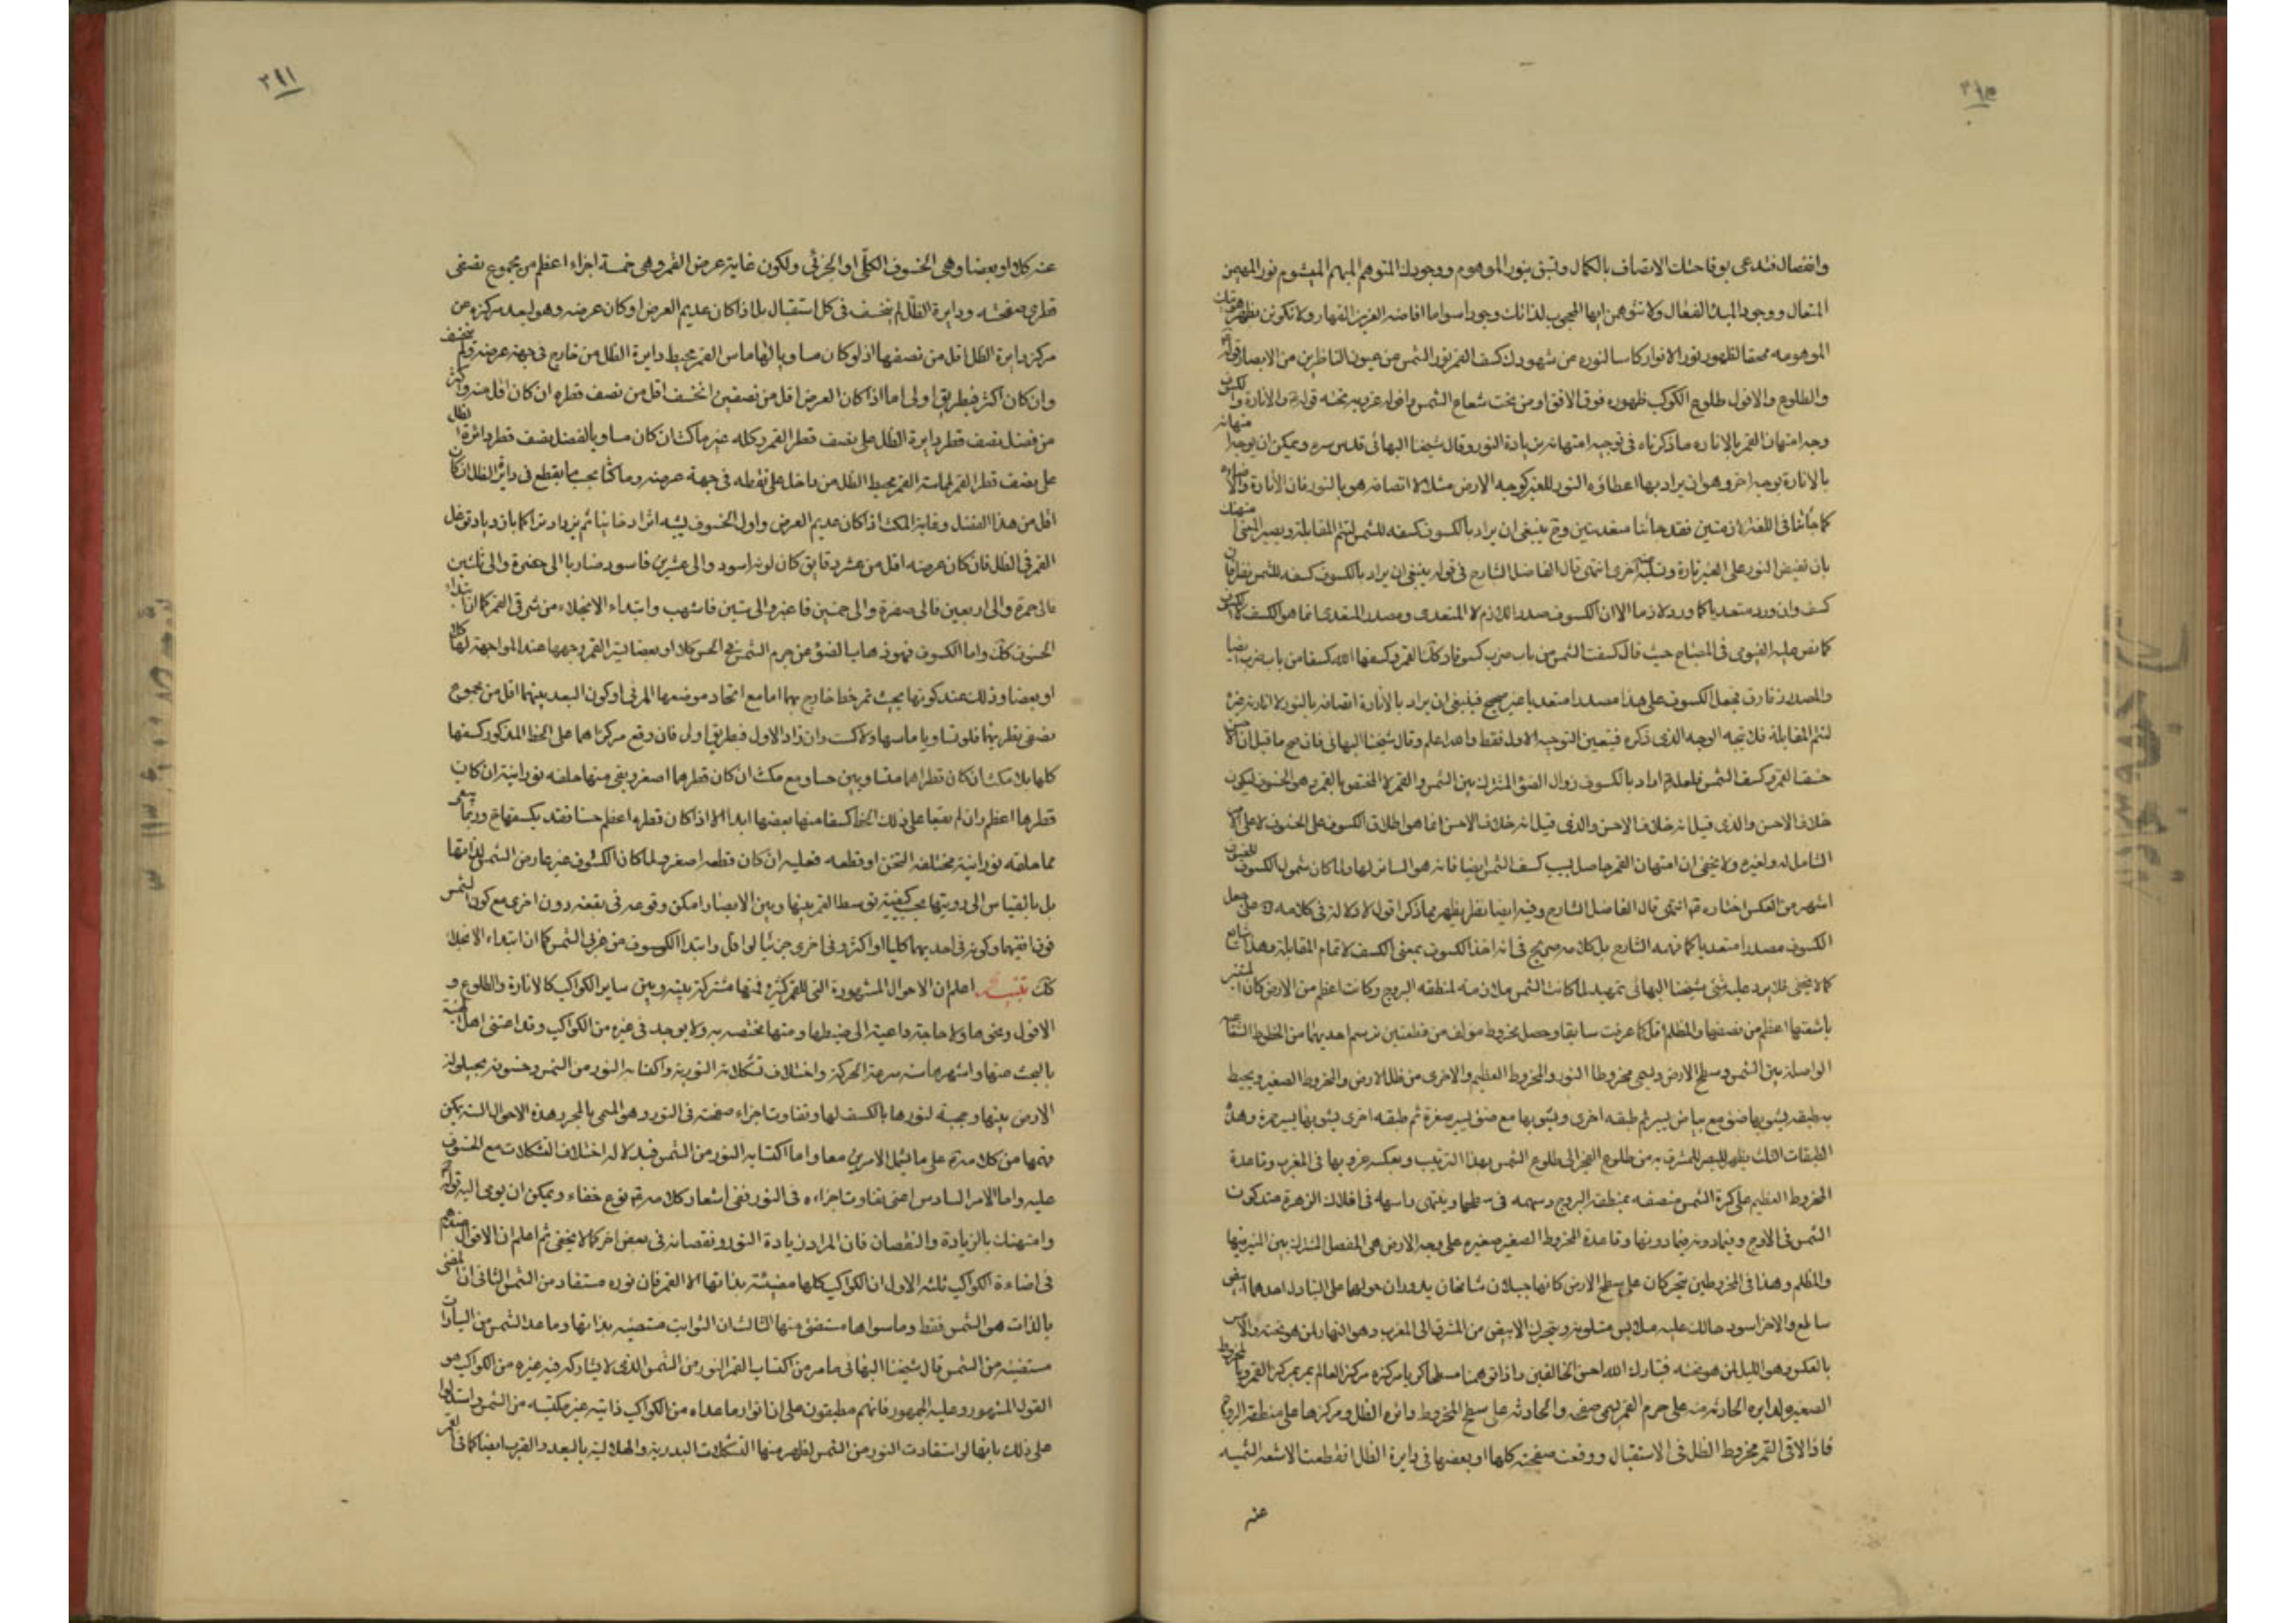 وانفصال فتدعى بوقاحتك الاتصاف بالكمال وتبقى بنور الموهوم ووجودك المتوهم المبهم الميشوم نور المهيمن
المتعال ووجود المبدء الفعال ولا تتوهمن ايها المحجوب لذاتك وجودا سوا ما افاضه العزيز القهار ولا تكونن بظهور هويتك
الموهومه محقا لظهور نور الانوار كاسا لنوره عن شهودك كسف القمر نور الشمس من عيون الناظرين من الابصار قوله
والطلوع والافول طلوع الكوكب ظهوره فوق الافق او من تحت شعاع الشمس وافوله غروبه تحته قوله والانارة والكسوف
وجه امتهان القمر بالاناره ما ذكرناه فى توجيه امتهانه بزيادة النور وقال شيخنا البهائى قدس سره ويمكن ان يوجه امتهانه
بالانارة بوجه اخر وهو ان يراد بها اعطاؤه النور للغير كوجه الارض مثلا لا اتصافه هو بالنور فان الانارة والاضاءة
كما جائتا فى اللغة لازمتين فقد جائتا متعديتين وح ينبغى ان يراد بالكسوف كسفه للشمس لتتم المقابلة ويصير المعنى امتهنك
بان تفيض النور على الغير تارة وتسلبه عنه اخرى انتهى قال الفاضل الشارح فى قوله ينبغى ان يراد بالكسوف كسفه للشمس نظر فان
كسف وان ورد متعديا كما ورد لازما الا ان الكسوف مصدر اللازم لا المتعدى ومصدر المتعدى انما هو الكسف لا الكسوف
كما نص عليه الفيومى فى المصباح حيث قال كسفت الشمس من باب ضرب كسوفا وكذلك القمر وكسفها الله كسفا من باب ضرب ايضا
والمصدر فارق فجعل الكسوف على هذا مصدرا متعديا غير صحيح فينبغى ان يراد بالانارة اتصافه بالنور لا انارته غيره
لتتم المقابلة فلا يتجه الوجه الذى ذكره فتعين التوجيه الاول فقط والله اعلم وقال شيخنا البهائى فان صح ما قيل ان الاحسن
خسف القمر وكسف الشمس فلعله اراد بالكسوف زوال الضوء المشترك بين الشمس والقمر لا المختص بالقمر وهو الخسوف ليكون
خلاف الاحسن والذى قيل انه خلاف الاحسن والذى قيل انه خلاف الاحسن انما هو اطلاق الكسوف على الخسوف لا على الامر
الشامل له ولغيره ولا يخفى ان امتهان القمر حاصل بسبب كسف الشمس ايضا فانه هو الساتر لها ولما كان شمول الكسوف للخسوف
اشهر من العكس اختاره انتهى قال الفاضل الشارح وفيه ايضا نظر يظهر مما ذكر اقول لا دلالة فى كلامه على جعل
الكسوف مصدرا متعديا كما فهمه الشارح بل كلامه صريح فى انه اخذ الكسوف بمعنى الكسف لاتمام المقابلة وهذا شايع
كما لا يخفى فلا يرد عليه شئ شيخنا البهائى تمهيد لما كانت الشمس ملازمة لمنطقه البروج وكانت اعظم من الارض كان المستنير
باشعتها اعظم من نصفها والمظلم اقل كما عرفت سابقا وحصل مخروط مولف من قطعتين ترسم احديهما من الخطوط الشعاعيه
الواصلة بين الشمس وسطح الارض ويسمى مخروط النور والمخروط العظيم والاخرى من ظل الارض والمخروط الصغير ويحيط
به طبقه يشوبها ضوء مع بياض يسير ثم طبقه اخرى ويشوبها مع ضوء يسير صفرة ثم طبقه اخرى يشوبها يسير حمرة وهذه
الطبقات الثلث يظهر للبصر للمشرق به من طلوع الفجر الى طلوع الشمس بهذا الترتيب وبعكسه غروبها فى المغرب وقاعدة
المخروط العظيم على كرة الشمس منصفه بمنطقه البروج وسهمه فى سطحها وينتهى راسه فى افلاك الزهرة عند كون
الشمس فى الاوج وفيما دونه فيما دونها وقاعدة المخروط الصغير صغيره على وجه الارض هى الفصل المشترك بين المنير منها
والمظلم وهذا فى المخروطين يتحركان على سطح الارض كانهما جبلان شامخان يدوران حولها على التبادل احدهما ابيض
ساطع والاخر اسود حالك عليه ملابس متلونه ويتحرك الابيض من المشرق الى المغرب وهو النهار لمن هو تحته والاسود
بالعكس وهو الليل لمن هو تحته فتبارك الله احسن الخالقين واذا توهمنا سطحا كريا مركزه مركز العالم يمر بمركز القمر وبالمخروط
الصغير ولدايره الحادثه منه على جرم القمر يسمى صفحه والحادثه على سطح المخروط دائره الظل ومركزها على منطقة البروج
فاذا لاقى القمر مخروط الظل فى الاستقبال ووقعت صفحته كلها او بعضها فى دايرة الظل انقطعت الاشعه الشمسيه
عنه
٣٩١
عنه كلا او بعضا وهى الخسوف الكلى او الجزئى ولكون غاية عرض القمر وهى خمسة اجزاء اعظم من مجموع نصفى
قطرى صفحته ودايرة الظل لم ينخسف فى كل استقبال بل اذا كان عديم العرض او كان عرضه وهو بعد مركزه عن
مركز دايرة الظل اقل من نصفها اذ لو كان مساويا لهما ماس القمر محيط دايرة الظل من خارج فى جهة عرضه ولم ينخسف
وان كان اكثر فبطريق اولى اما اذا كان العرض اقل من نصفين انخسف اقل من نصف قطره ان كان اقل منه واكثر
من فضل نصف قطر دايرة الظل على نصف قطر القمر وكله غير ماكث ان كان مساويا لفضل نصف قطر دائرة الظل
على نصف قطر القمر لمماسة القمر محيط الظل من داخل على نقطه فى جهة عرضه وماكثا بحسب ما يقطع فى دايرة الظل ان كان
اقل من هذا الفضل وغاية المكث اذا كان عديم العرض واول الخسوف يشبه اثرا دخانيا ثم يزداد تراكما بازدياد توغل
القمر فى الظل فان كان عرضه اقل من عشر دقايق كان لونه اسود والى عشرين فاسود ضاربا الى خضرة والى ثلثين
فالى حمرة والى اربعين فالى صفرة والى خمسين فاغبر والى ستين فاشهب وابتداء الانجلاء من شرقى القمر كما ان ابتداء
الخسوف كذلك واما الكسوف فهو ذهاب الضوء عن جرم الشمس فى الحس كلا او بعضا ليستر القمر وجهها عند المواجهة لها كلا
او بعضا وذلك عند كونها بحيث تمر خط خارج بهما اما مع اتحاد موضعها المرئى او كون البعد بينهما اقل من مجموع
نصفى قطريهما فلو تساويا ماسها ولا كسف وان زاد الاول فبطريق اولى فان وقع مركزاهما على الخط المذكور كسفها
كلها بلا مكث ان كان قطراهما متساويين حسا ومع مكث ان كان قطرها اصغر ويبقى منها حلقه نورانية ان كان
قطرها اعظم وان لم يقعا على ذلك الخط كسفا منها بعضها ابدا الا اذا كان قطره اعظم حسا فقد يكسفها ح وربما يبقى
مما حلقه نورانية مختلفه الثخن او قطعه فعليه ان كان قطعه اصغر ولما كان الكسوف غير عارض الشمس لذاتها
بل بالقياس الى رويتها بحسب كيفية توسط القمر بينها وبين الابصار امكن وقوعه فى بقعه دون اخرى مع كون الشمس
فوق افقيهما وكونه فى احديهما كليا او اكثر وفى اخرى جزئيا او اقل وابتداء الكسوف من غربى الشمس كما ان ابتداء الانجلاء
كذلك تنبيه اعلم ان الاحوال المشهورة التى للقمر كثيرة فمنها مشتركة بينه وبين ساير الكواكب كالانارة والطلوع و
الافول ونحوها ولا حاجة داعية الى ضبطها ومنها مختصه به ولا يوجد فى غيره من الكواكب وقد اعتنى اهل الهيئة
بالبحث عنها واشهرها سته سرعة الحركة واختلاف تشكلاته النورية واكتسابه النور من الشمس وخسوفه بحيلولة
الارض بينهما وحجبه لنورها بالكسف لها وتفاوت اجزاء صفحته فى النور وهو المسمى بالمحو وهذه الاحوال الستة يمكن
فهمها من كلامه على ما لتلك الامرين معا واما اكتسابه النور من الشمس فبدلالة اختلاف التشكلات مع الخسوف
عليه واما الامر السادس اعنى تفاوت اجزاءه فى النور ففى اشعار كلامه به نوع خفاء ويمكن ان يومى اليه قوله
وامتهنك بالزيادة والنقصان فان المراد زيادة النور ونقصانه فى بعض اخر كما لا يخفى ثم اعلم ان الاقوال عندهم
فى اضاءة الكواكب ثلثه الاول ان الكواكب كلها مضيئة بذاتها الا القمر فان نوره مستفاد من الشمس الثانى ان المضى
بالذات هو الشمس فقط وما سواها مستضئ منها الثالث ان الثوابت مضيئه بذاتها وما عدا الشمس من السيارات
مستضيئه من الشمس قال شيخنا البهائى ما مر من اكتساب القمر النور من الشمس الذى لا يشاركه فيه غيره من الكواكب هو
القول المشهور وعليه الجمهور فانهم مطبقون على ان انوار ما عداه من الكواكب ذاتية غير مكتسبه من الشمس واستدلوا
على ذلك بانها لو استفادت النور من الشمس لظهر منها التشكلات البدرية والهلالية بالبعد والقرب ايضا كما فى القمر